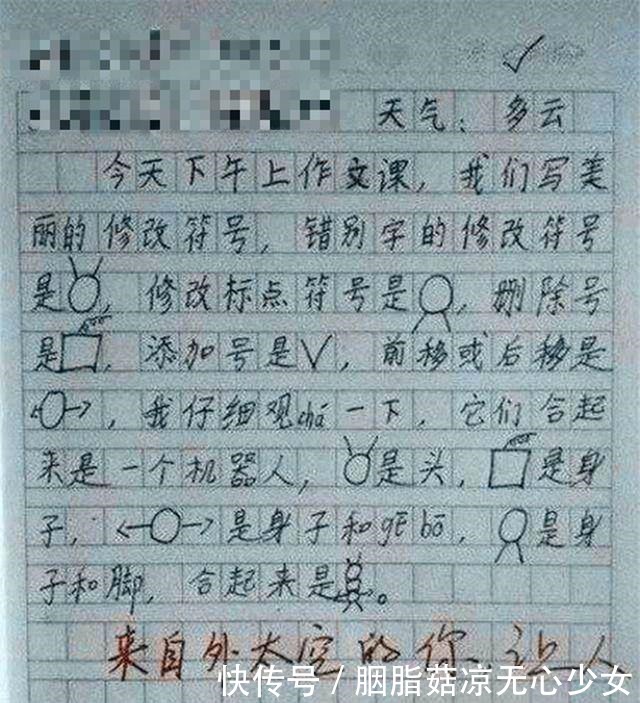 天气：多云
今天下午上作文课，我们写美
丽的修改符号，错别字的修改符号
是，修改标点符号是，删除号
是，添加号是√，前移或后移是
，我仔细观chá一下，它们合起
来是一个机器人，是头，是身
子，是身子和gē bō，是身
子和脚，合起来是。
来自外太空的你，让人
快传号/胭脂菇凉无心少女